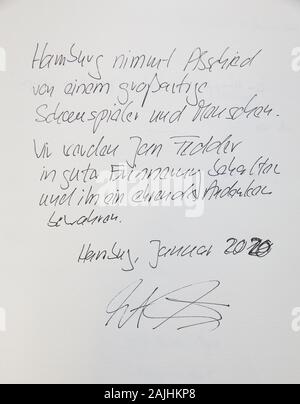 Hamburg nimmt Abschied
von einem großartigen
Schauspieler und Menschen.
Wir werden Jan Fedder
in guter Erinnerung behalten
und ihm ein ehrendes Andenken
bewahren.
Hamburg, Januar 2020
alamy stock photo